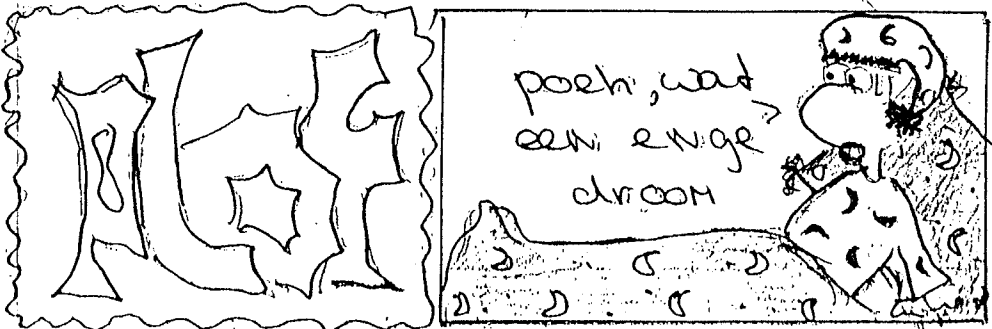 Alof
poeh, wat
een enge
droom